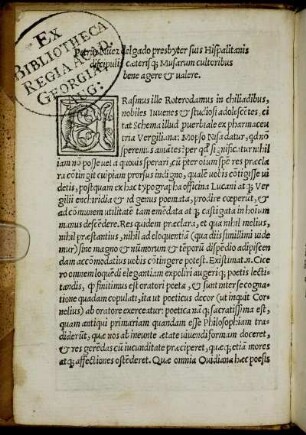 EX
BIBLIOTHECA
REGIA ACAD.
GEORGIAE
AUG:
Petrus Nuñez delgado presbyter suis Hispalitanis
discipulis cæterisq; Musarum cultoribus
bene agere & ualere.
ERasmus ille Roterodamus in chiliadibus,
nobiles Iuuenes & studiosi adolescẽtes, ci
tat schema illud puerbiale ex pharmaceu
tria Vergiliana: Mopso Nisa datur, qd nõ
speremus amãtes? per qd significatur nihil
iam nõ posse uel a quouis sperari, cũ
res præcla
ra cõtingit cuipiam prorsus indigno, qualẽ uobis cõtigisse ui
detis, postquam ex hac typographa officina Lucani atq; Ver
gilii enchiridia & id genus poemata, prodire cœperut, &
ad cõmunem utilitatẽ tam emẽdata atq; castigata in hoium
manus descẽdere. Res quidem præclara, et qua nihil melius,
nihil præstantius, nihil ad eloquentiã (qua diis simillimi uide
mur) sine magno & numorum & tẽporũ dispẽdio adipiscen
dam accõmodatius uobis cõtingere potest. Existimat. n. Cice
ro omnem loquẽdi elegantiam expoliri augeriq; poetis lectis
tandis, q, finitimus est oratori poeta, & sunt inter se cogna=
tione quadam copulati, ita ut poeticus decor (ut inquit Cor=
nelius) ab oratore exerceatur: poetica nãq; sacratissima est,
quam antiqui primariam quandam esse Philosophiam tra=
diderũt, quæ nos ab ineunte ætate uiuendi formam doceret,
& res gerẽdas cũ iucunditate præciperet, quæq; etiã mores
atq; affectiones ostẽderet. Quæ omnia Ouidiana hæc poesis